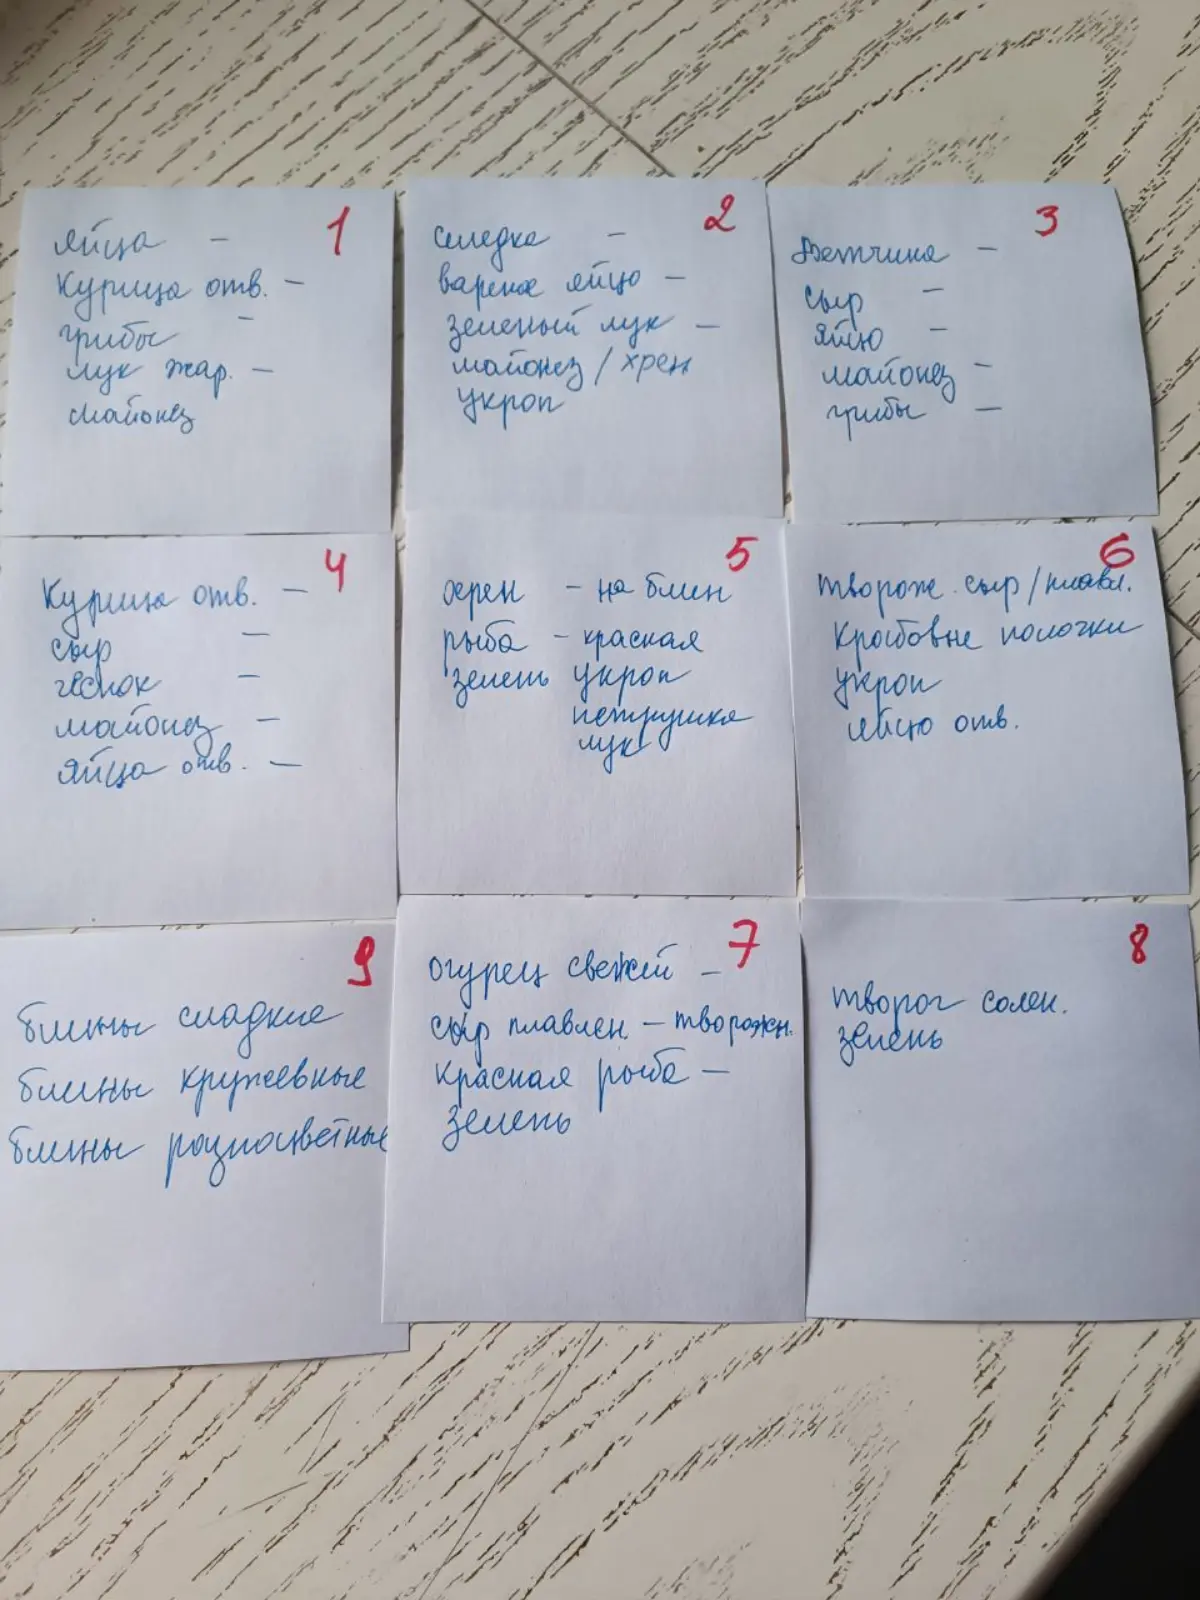 1
яйца –
Курица отв. –
грибы –
лук жар. –
майонез
2
селедка –
вареное яйцо –
зеленый лук –
майонез / хрен
укроп
3
Ветчина –
сыр –
яйцо –
майонез –
грибы –
4
Курица отв. –
сыр –
чеснок –
майонез –
яйца отв. –
5
хрен – на блин
рыба – красная
зелень укроп
петрушка
лук
6
творож. сыр / плавл.
Крабовые палочки
укроп
яйцо отв.
9
блины сладкие
блины кружевные
блины разноцветные
7
огурец свежий –
сыр плавлен. – творожн.
красная рыба –
зелень
8
творог солен.
зелень